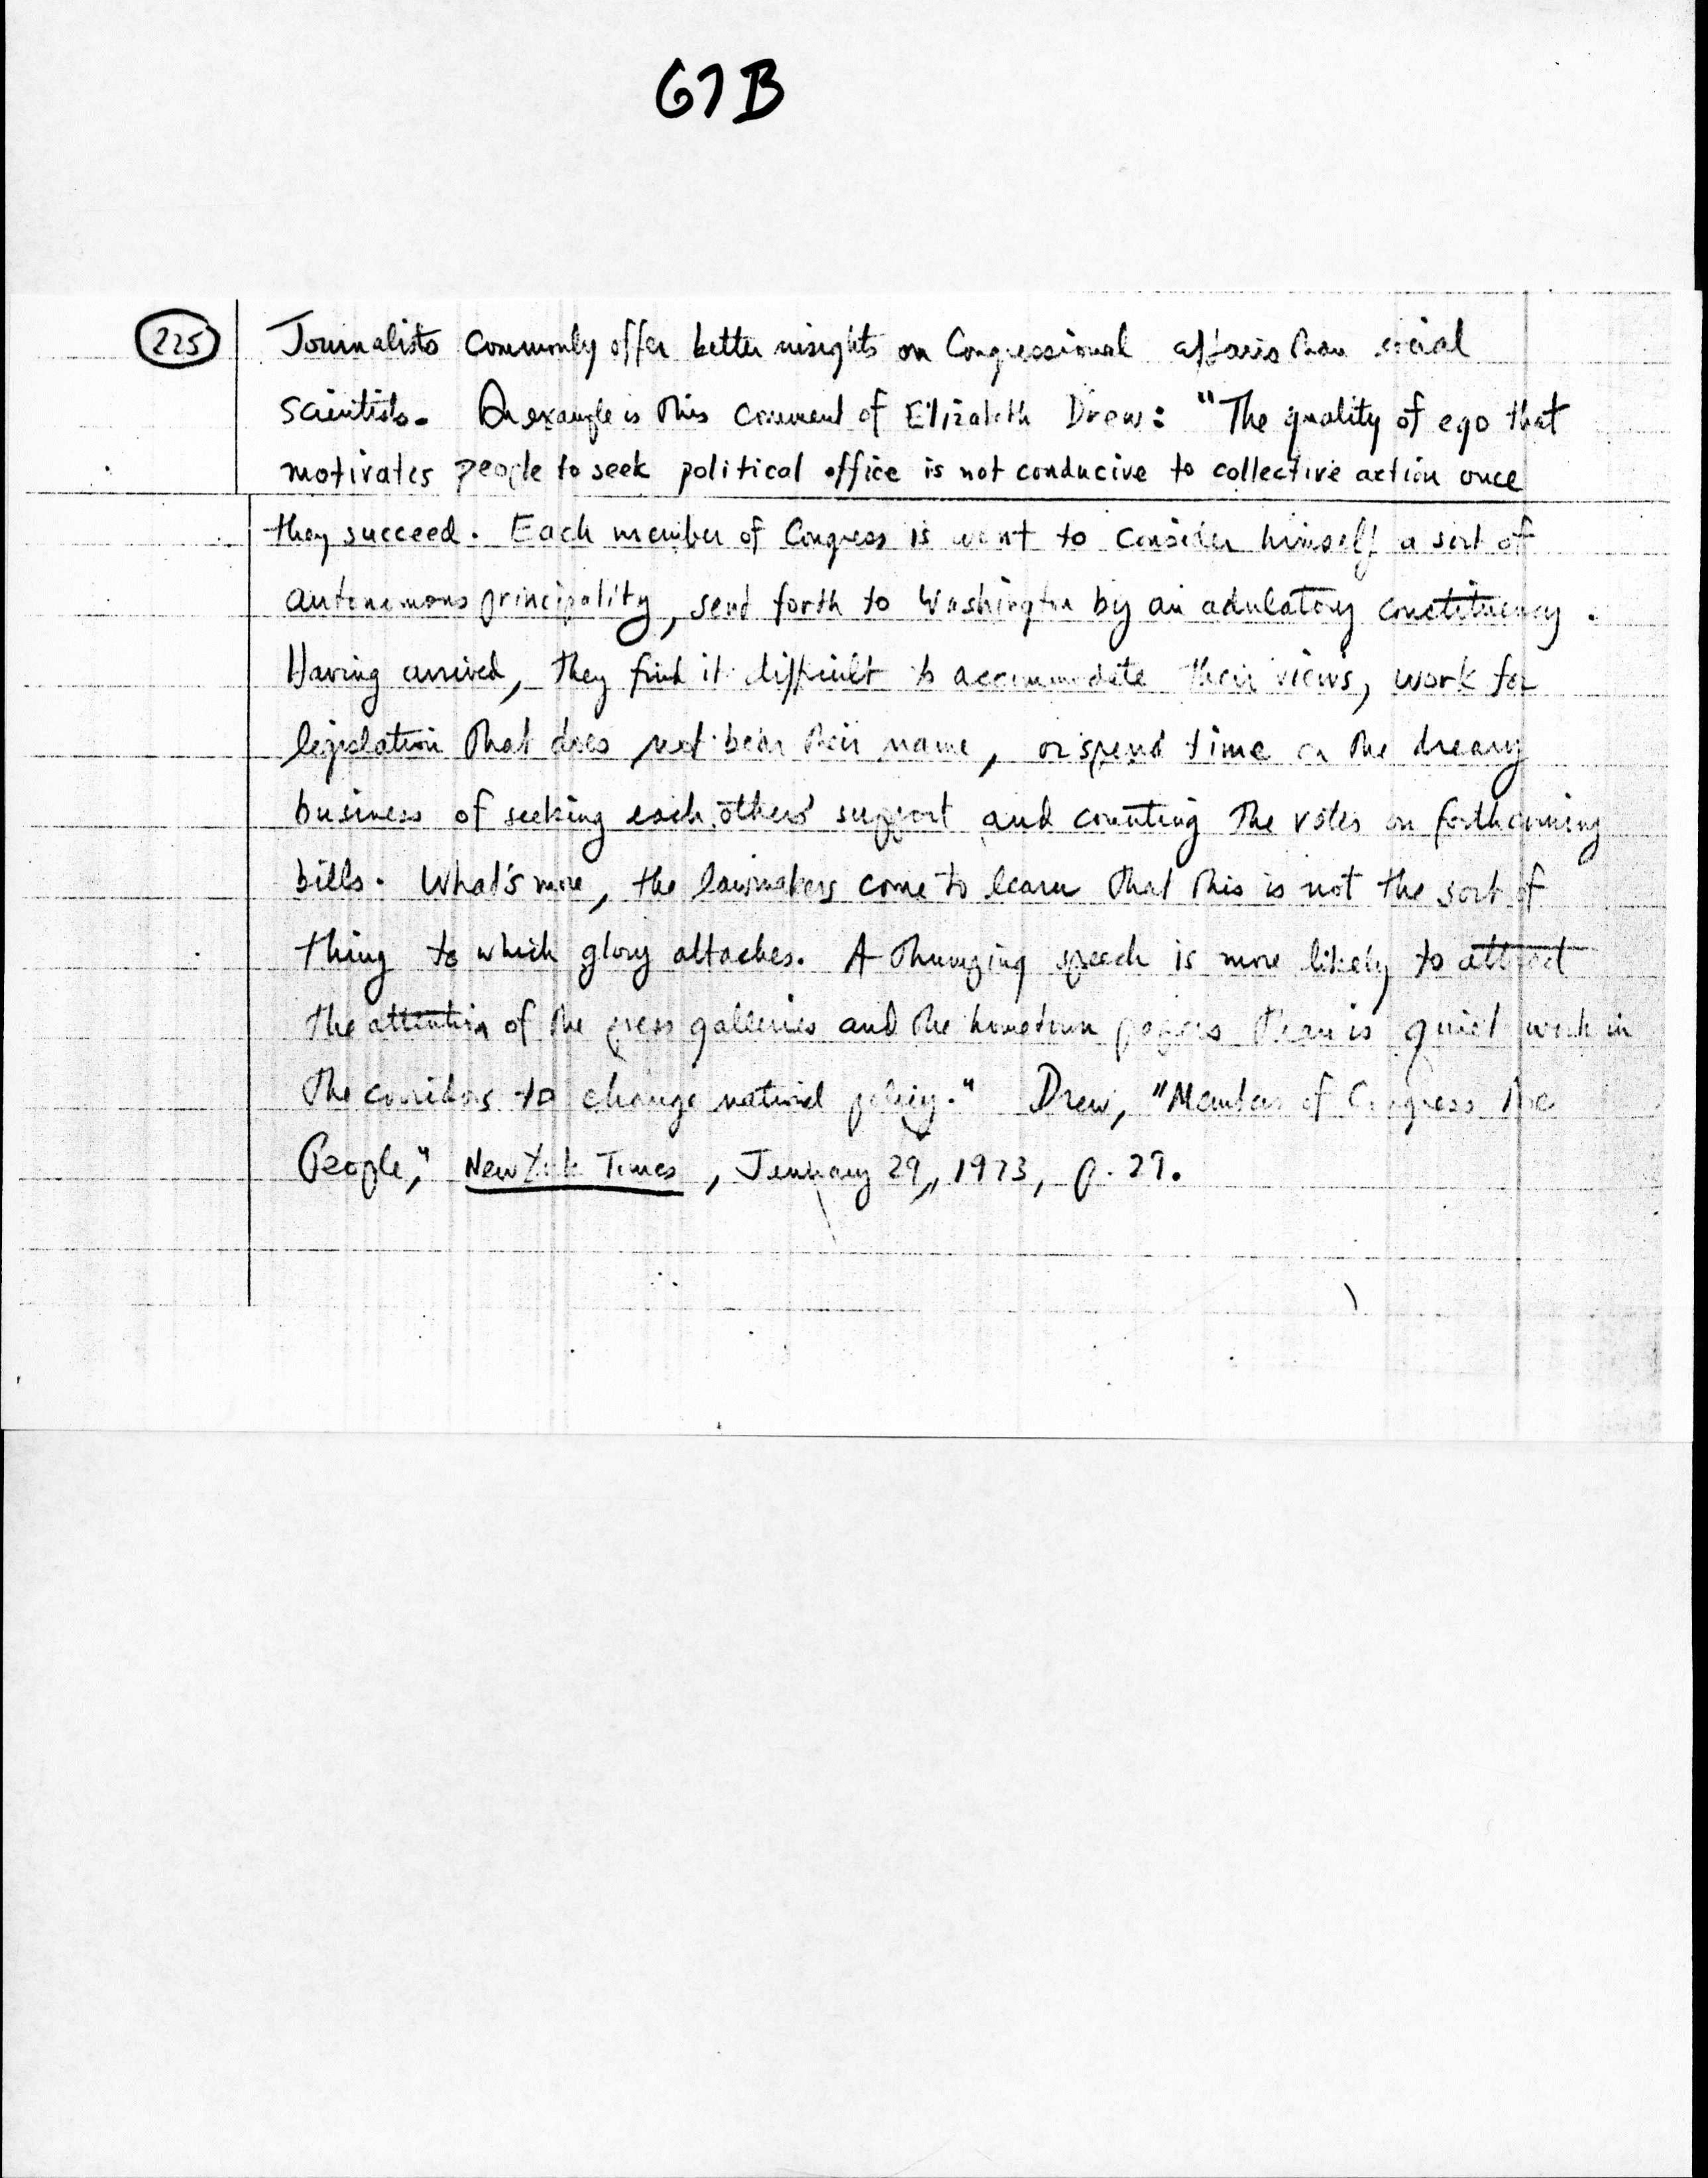 67B
225 Journalists commonly offer better insights on Congressional affairs than social
scientists. An example is this comment of Elizabeth Drew: "The quality of ego that
motivates people to seek political office is not conducive to collective action once
they succeed. Each member of Congress is wont to consider himself a sort of
autonomous principality, send forth to Washington by an adulatory constituency.
Having arrived, they find it difficult to accommodate their views, work for
legislation that does not bear their name, or spend time on the dreary
business of seeking each others' support and counting the votes on forthcoming
bills. What's more, the lawmakers come to learn that this is not the sort of
thing to which glory attaches. A thumping speech is more likely to attract
the attention of the press galleries and the hometown papers than is quiet work in
the corridors to change national policy." Drew, "Members of Congress Are
People," New York Times, January 29, 1973, p. 29.